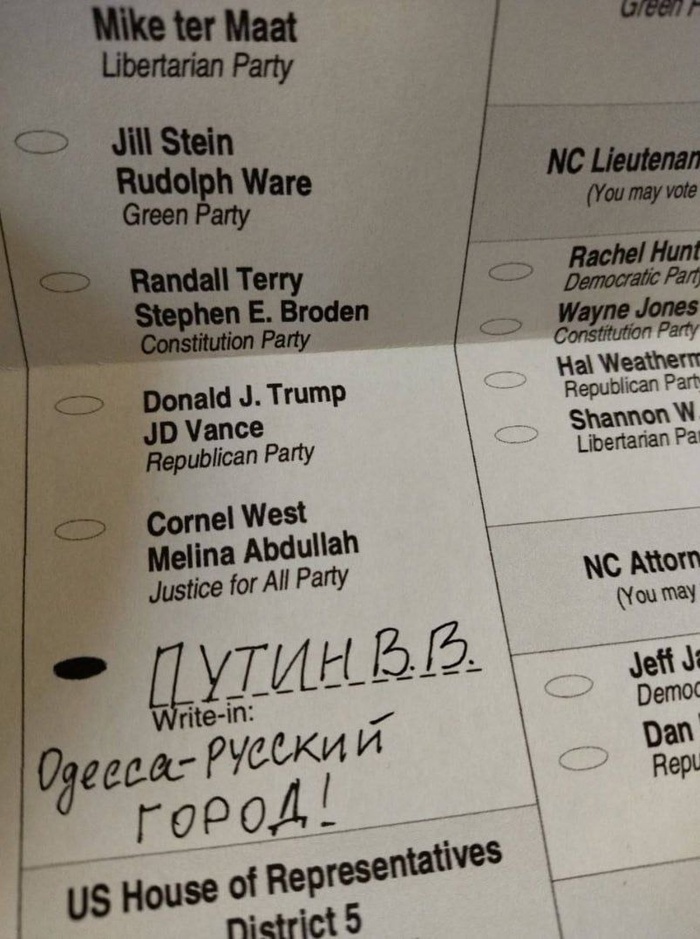 Mike ter Maat
Libertarian Party
Jill Stein
Rudolph Ware
Green Party
Randall Terry
Stephen E. Broden
Constitution Party
Donald J. Trump
JD Vance
Republican Party
Cornel West
Melina Abdullah
Justice for All Party
ПУТИН В.В.
Write-in:
Одесса-РУССКИЙ
ГОРОД!
US House of Representatives
District 5
Green
NC Lieutenan
(You may vote
Rachel Hunt
Democratic Party
Wayne Jones
Constitution Party
Hal Weatherm
Republican Party
Shannon W
Libertarian Pa
NC Attorn
(You may
Jeff Ja
Democ
Dan
Repu